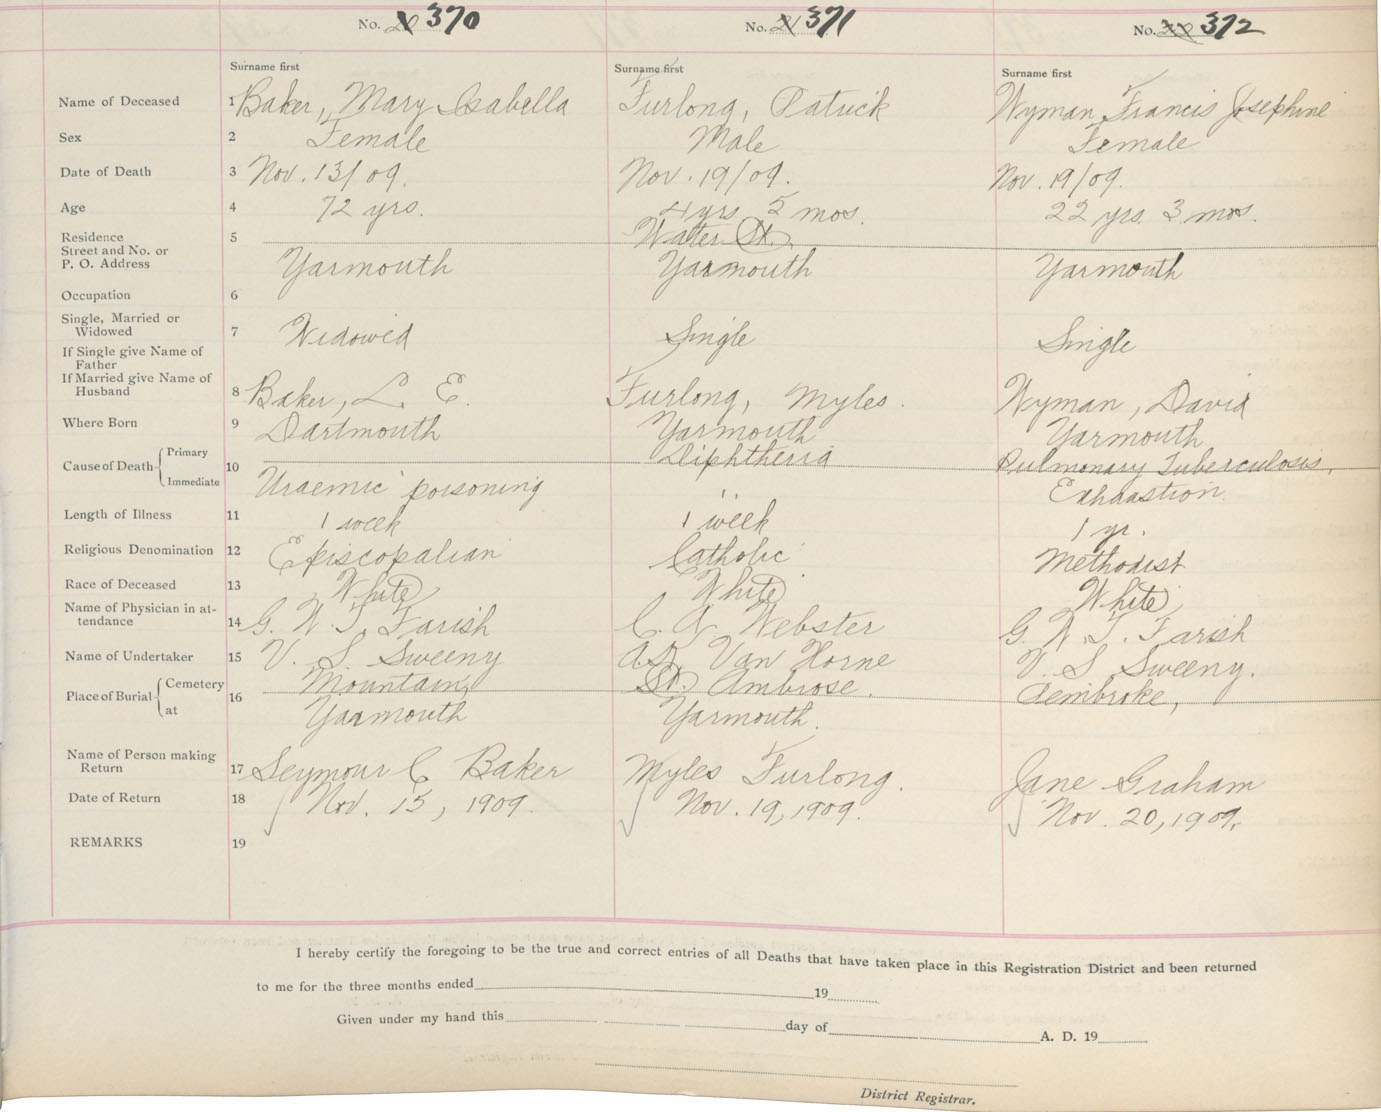 No. 20 370 No. 21 371 No. 22 372
Surname first Surname first Surname first
Name of Deceased 1 Baker, Mary Isabella Furlong, Patrick Wyman Francis Josephine
Sex 2 Female Male Female
Date of Death 3 Nov. 13/09. Nov. 19/09. Nov. 19/09.
Age 4 72 yrs. 4 yrs 5 mos. 22 yrs. 3 mos.
Residence 5 Water St.
Street and No. or
P. O. Address Yarmouth Yarmouth Yarmouth
Occupation 6
Single, Married or
Widowed 7 Widowed Single Single
If Single give Name of
Father
If Married give Name of
Husband 8 Baker, L. E. Furlong, Myles. Wyman, David
Where Born 9 Dartmouth Yarmouth Yarmouth
Cause of Death Primary 10 Diphtheria Pulmonary Tuberculosis,
Immediate Uraemic poisoning " Exhaustion
Length of Illness 11 1 week 1 week 1 yr.
Religious Denomination 12 Episcopalian Catholic Methodist
Race of Deceased 13 White White White
Name of Physician in at-
tendance 14 G. W. T. Farish C. A. Webster G. W. T. Farish
Name of Undertaker 15 V. S. Sweeny Van Horne V. S. Sweeny.
Place of Burial Cemetery 16 Mountain, St. Ambrose. Pembroke,
at Yarmouth Yarmouth.
Name of Person making
Return 17 Seymour C Baker Myles Furlong. Jane Graham
Date of Return 18 Nov. 15, 1909. Nov. 19, 1909. Nov. 20, 1909.
REMARKS 19
I hereby certify the foregoing to be the true and correct entries of all Deaths that have taken place in this Registration District and been returned
to me for the three months ended 19
Given under my hand this day of A. D. 19
District Registrar.